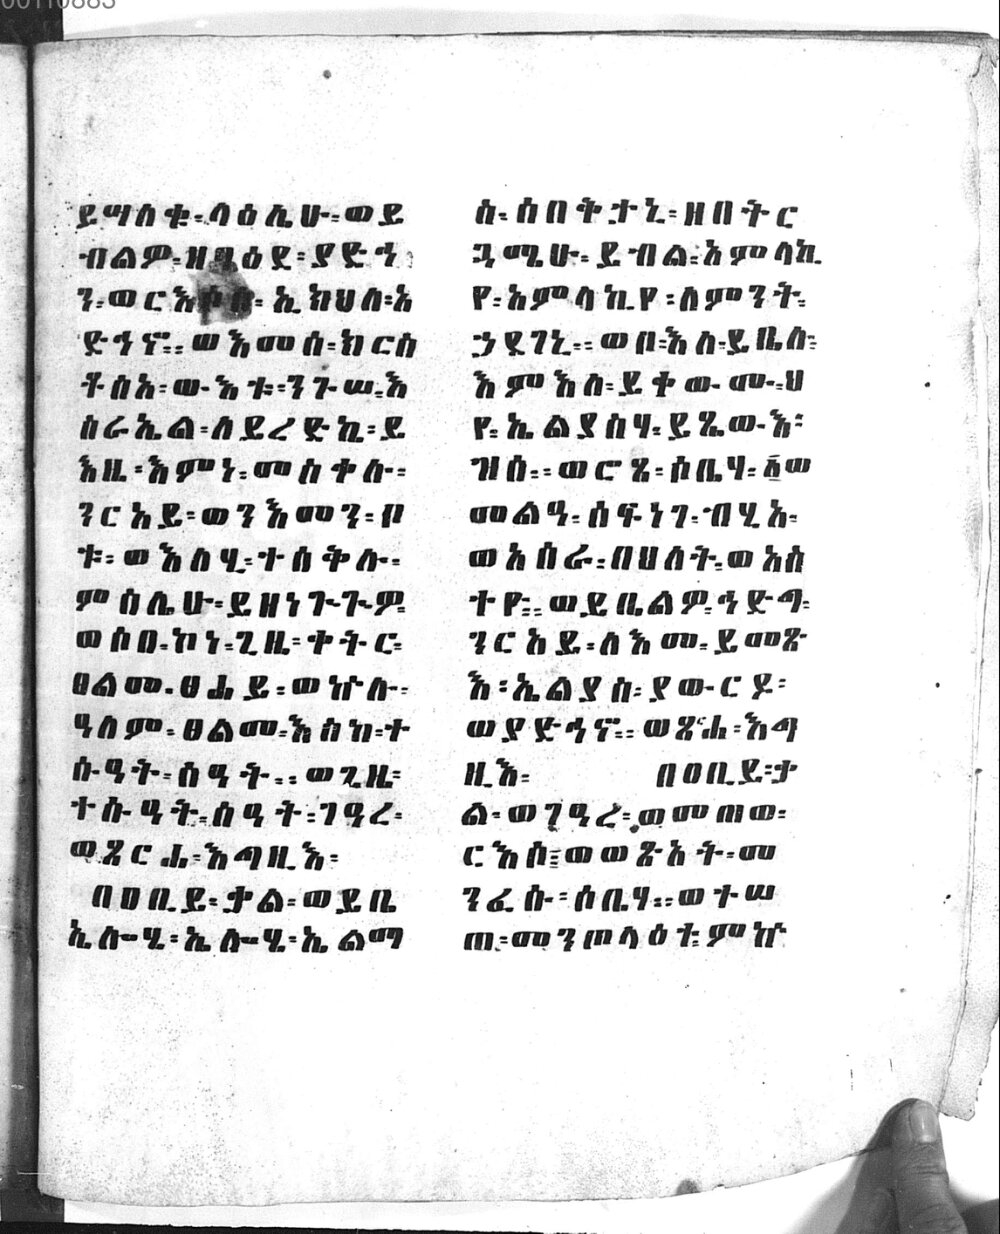 ይሣለቁ፡ላዕሌሁ፡ወይ
ብልዎ፡ዘባዕደ፡ያድኅ
ን፡ወርእሶሰ፡ኢክህለ፡አ
ድኅኖ፡፡ወእመሰ፡ክርስ
ቶስአ፡ውእቱ፡ንጉሠ፡እ
ስራኤል፡ለይረድኬ፡ይ
እዜ፡እምነ፡መስቀሉ፡
ንርአይ፡ወንእመን፡ቦ
ቱ፡ወእለሂ፡ተሰቅሉ፡
ምስሌሁ፡ይዘነጉጉዎ
ወሶበ፡ኮነ፡ጊዜ፡ቀትር፡
ፀልመ፡ፀሐይ፡ወኵሉ፡
ዓለም፡ፀልመ፡እስከ፡ተ
ሱዓት፡ሰዓት፡፡ወጊዜ፡
ተሱዓት፡ሰዓት፡ገዓረ፡
ወጸርሐ፡እግዚእ፡
በዐቢይ፡ቃል፡ወይቤ
ኤሎሂ፡ኤሎሂ፡ኤልማ
ስ፡ሰበቅታኒ፡ዘበትር
ጓሜሁ፡ይብል፡አምላኪ
የ፡አምላኪየ፡ለምንት፡
ኃደገኒ፡፡ወቦ፡እለ፡ይቤሉ፡
እምእለ፡ይቀውሙ፡ህ
የ፡ኤልያስሃ፡ይጼውእ፡
ዝሰ፡፡ወሮጸ፡ሶቤሃ፡፩ወ
መልዓ፡ሰፍነገ፡ብሂአ፡
ወአሰራ፡በህለት፡ወአስ
ተዮ፡፡ወይቤልዎ፡ኅድግ፡
ንርአይ፡ለእመ፡ይመጽ
እ፡ኤልያስ፡ያውርዶ፡
ወያድኅኖ፡፡ወጸርሐ፡እግ
ዚእ፡ በዐቢይ፡ቃ
ል፡ወገዓረ፡ወመጠወ፡
ርእሶ፡፡ወወጽአት፡መ
ንፈሱ፡ሶቤሃ፡፡ወተሠ
ጠ፡መንጦላዕተ፡ምኵ